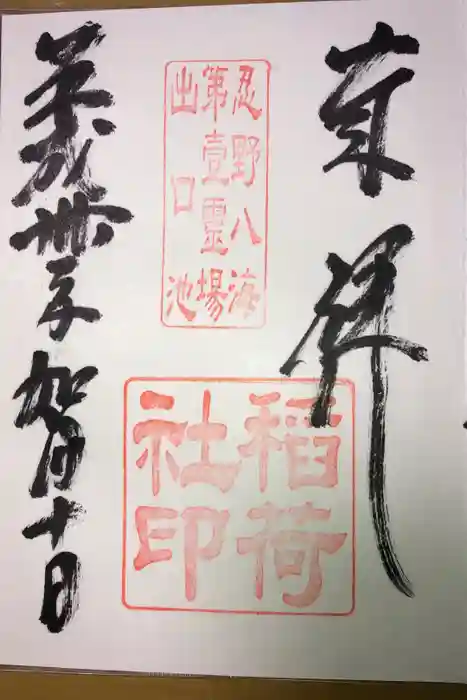 奉拝
忍野八海
第壹霊場
出口池
稲荷
社印
平成丗年如月十日